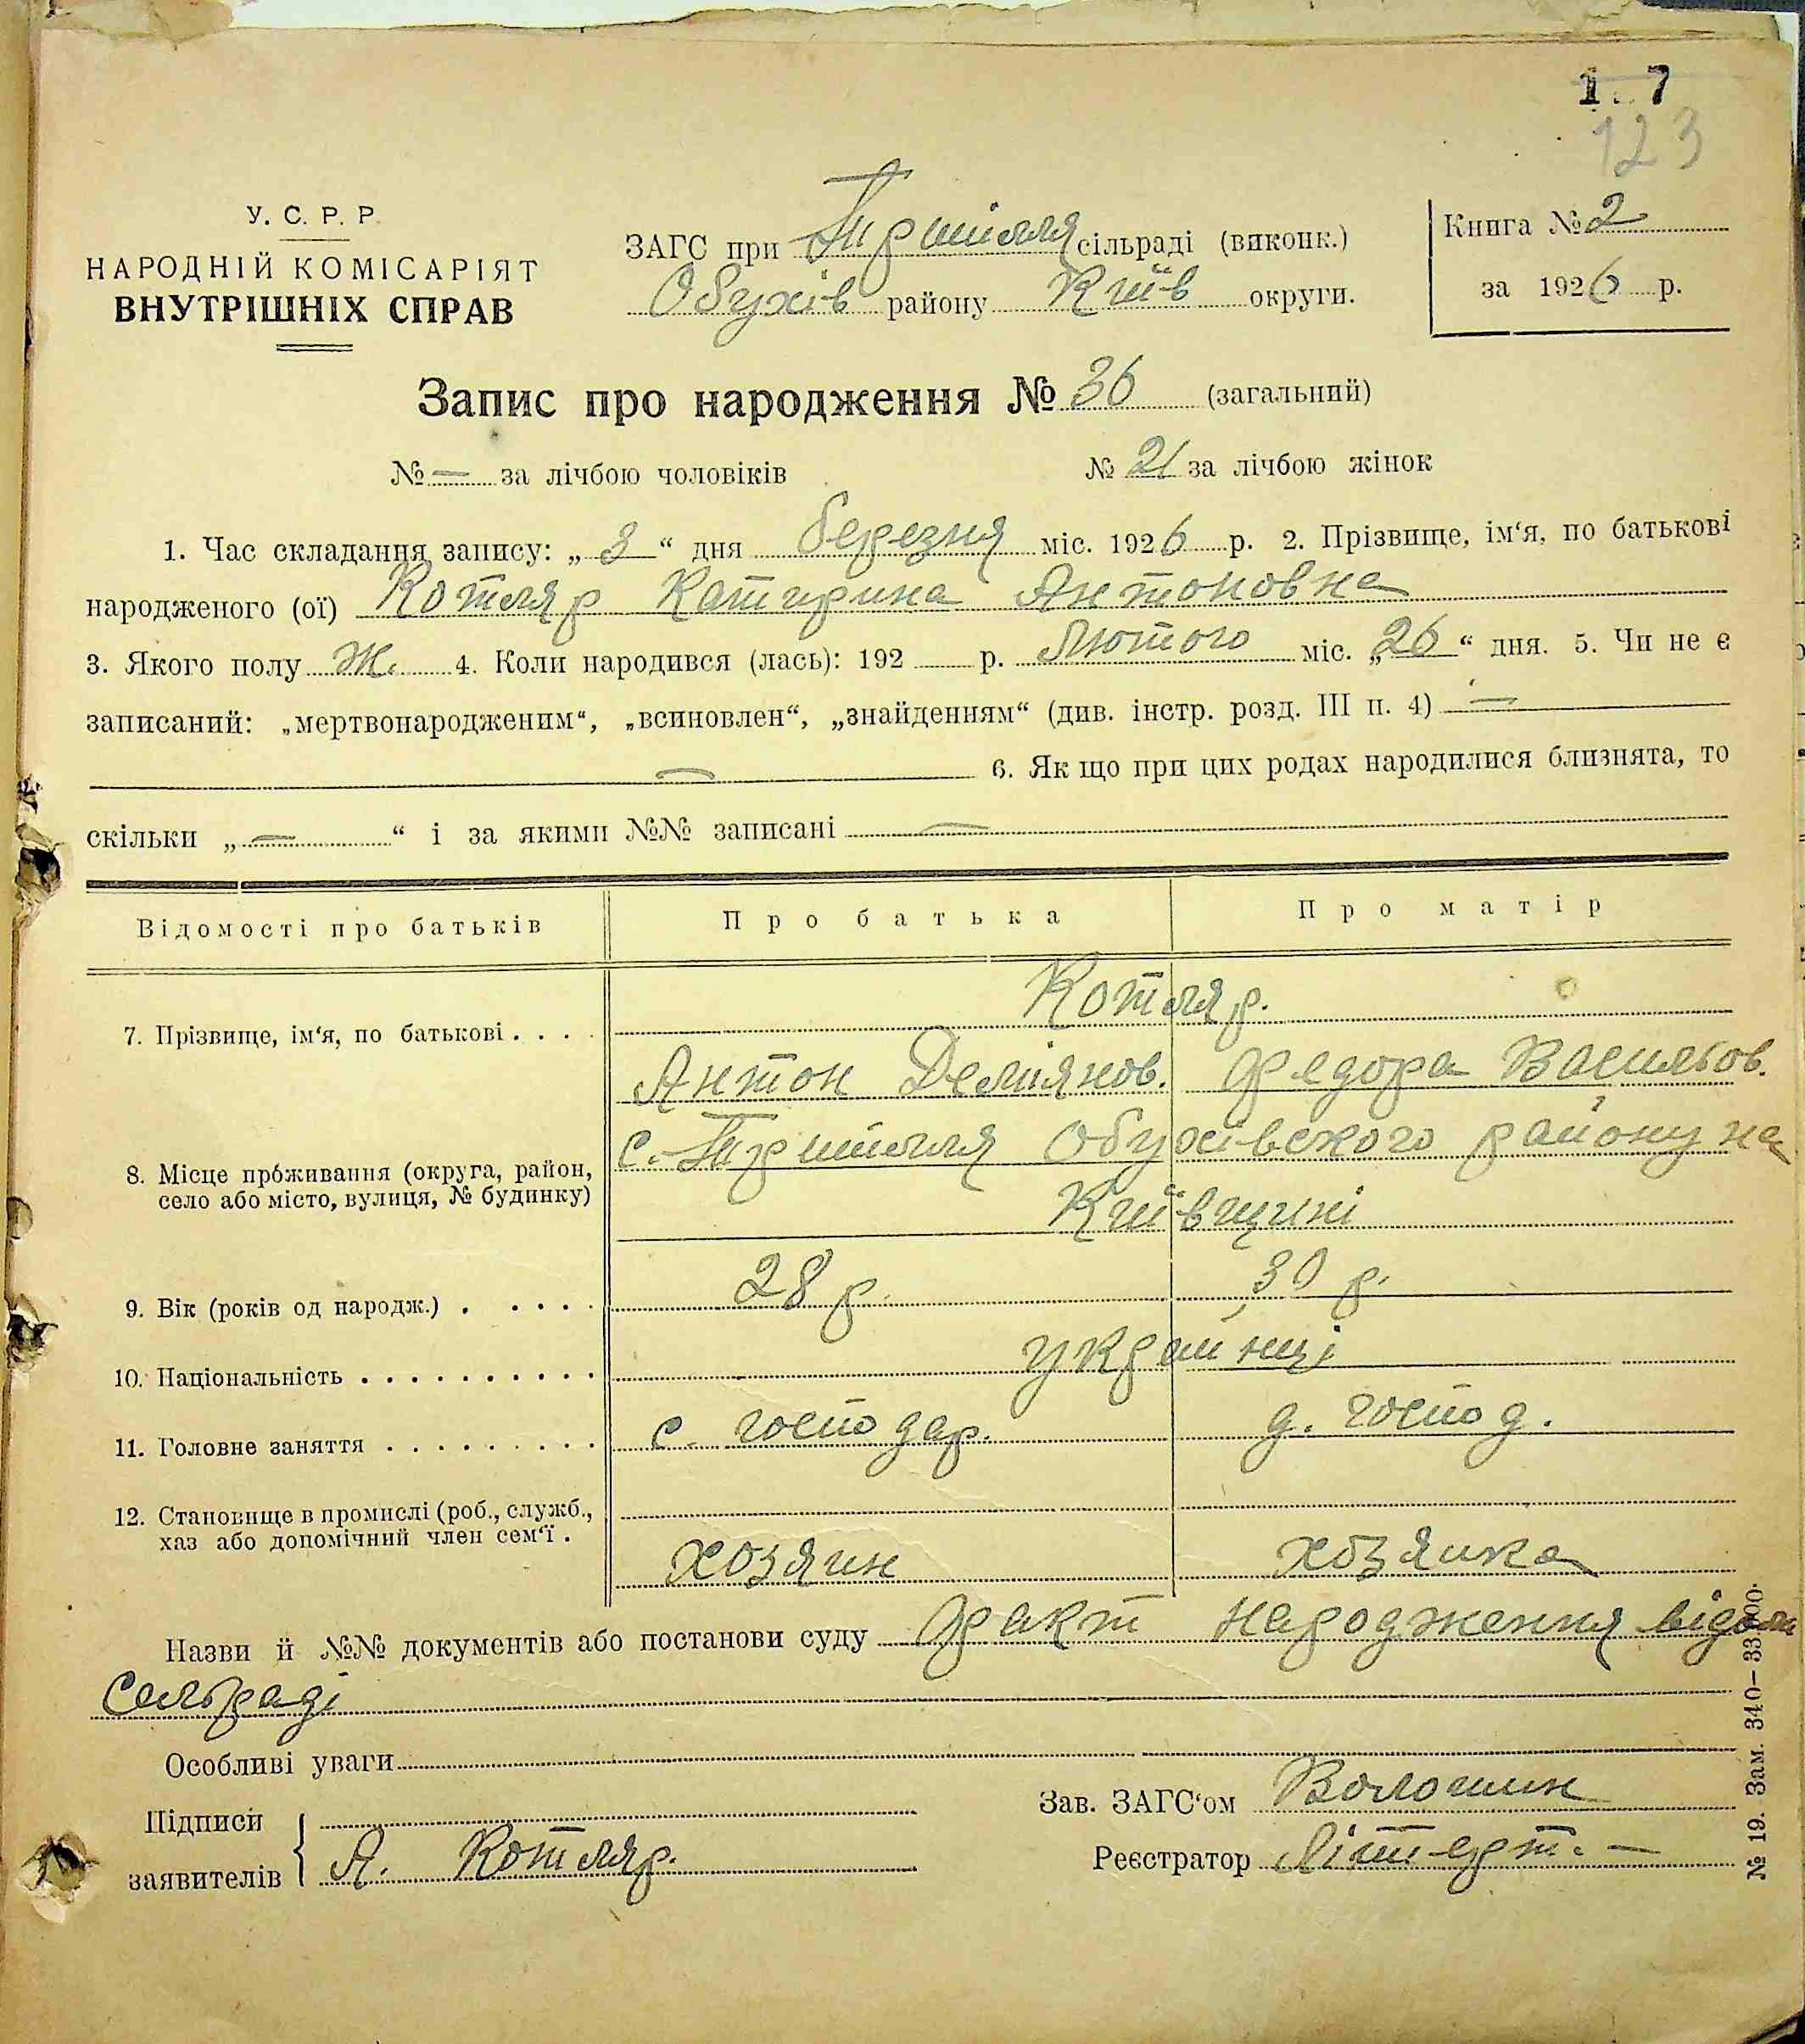 1 7
123
У. С. Р. Р.
НАРОДНІЙ КОМІСАРІЯТ
ВНУТРІШНІХ СПРАВ
ЗАГС при сільраді (виконк.)
Обухів району Київ округи.
Книга № 2
за 1926 р.
Запис про народження № 36 (загальний)
№ — за лічбою чоловіків № 21 за лічбою жінок
1. Час складання запису: „ 3 “ дня березня міс. 1926 р. 2. Прізвище, ім‘я, по батькові
народженого (ої) Котляр Катирина Антоновна
3. Якого полу Ж. 4. Коли народився (лась): 192 р. Лютого міс. „26“ дня. 5. Чи не є
записаний: „мертвонародженим“, „всиновлен“, „знайденням“ (див. інстр. розд. III п. 4) —
— 6. Як що при цих родах народилися близнята, то
скільки „ — “ і за якими №№ записані —
Відомості про батьків Про батька Про матір
Котляр.
7. Прізвище, ім‘я, по батькові . . . .
Антон Деміянов. Федора Васильов.
с. Обухівского району на
8. Місце проживання (округа, район,
село або місто, вулиця, № будинку)
Київщині
9. Вік (років од народж.) . . . . . 28 р. 30 р.
10. Національність . . . . . . . . . . українці
11. Головне заняття . . . . . . . . . с. господар. д. господ.
12. Становище в промислі (роб., служб.,
хаз або допомічний член сем‘ї .
хозяин хозяика
Назви й №№ документів або постанови суду Факт народження відом
Сельраді
Особливі уваги
Підписи
заявителів А. Котляр.
Зав. ЗАГС‘ом Волошин
Реєстратор
№ 19. Зам. 340—33.000.